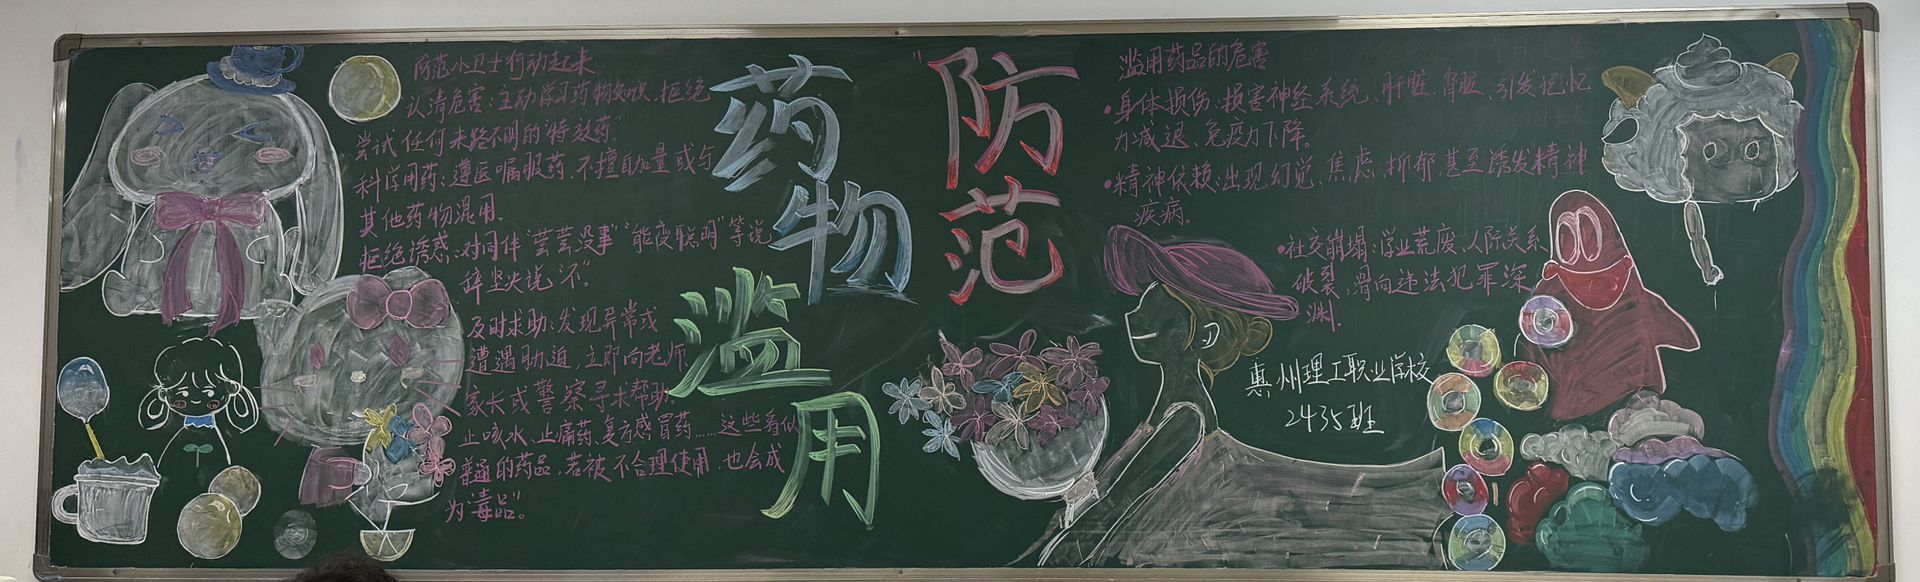 防范小卫士行动起来
认清危害：主动学习药物知识，拒绝
尝试任何来路不明的“特效药”
科学用药：遵医嘱服药，不擅自加量或与
其他药物混用。
拒绝诱惑：对同伴“尝尝没事”“能变聪明”等说
辞坚决说“不”。
及时求助：发现异常或
遭遇胁迫，立即向老师
家长或警察寻求帮助。
止咳水、止痛药、复方感冒药……这些看似
普通的药品，若被不合理使用，也会成
为“毒品”。
防范
药物
滥用
滥用药品的危害
·身体损伤：损害神经系统、肝脏、肾脏、引发记忆
力减退、免疫力下降。
·精神依赖：出现幻觉、焦虑、抑郁，甚至诱发精神
疾病。
·社交崩塌：学业荒废、人际关系
破裂，滑向违法犯罪深
渊。
惠州理工职业学校
2435班